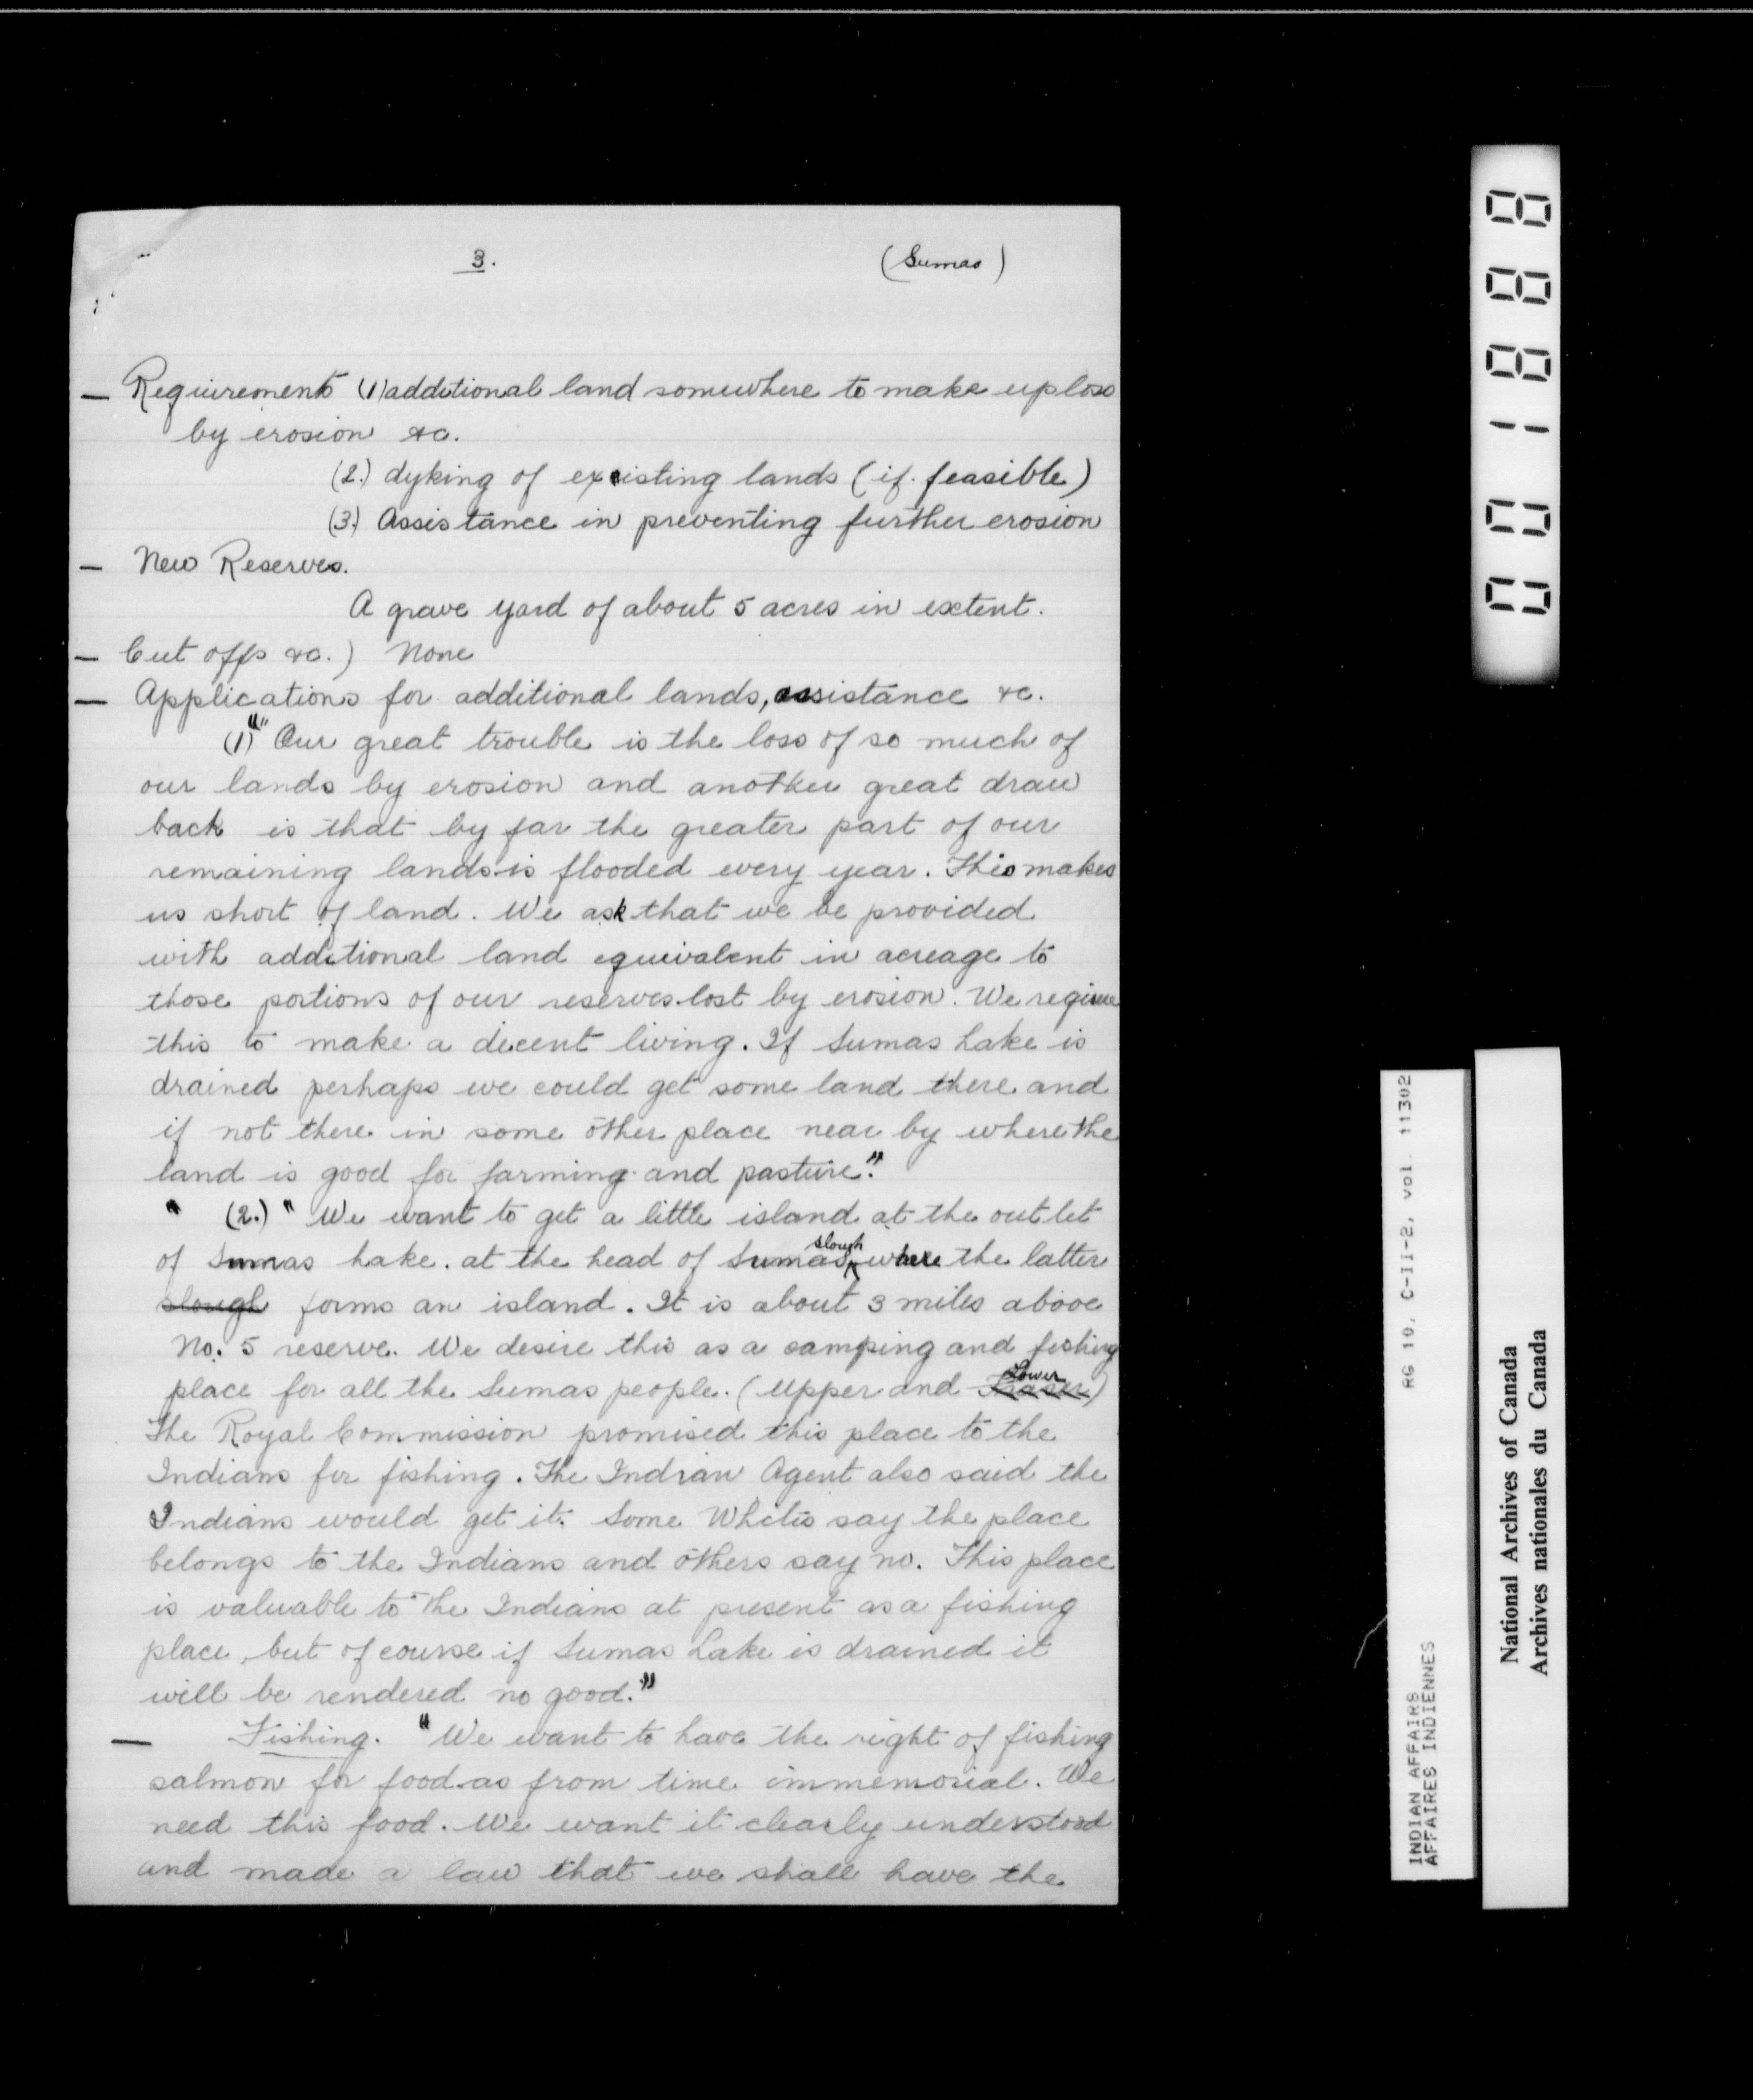 3.
(Sumas)
— Requirements (1) additional land somewhere to make up loss
by erosion &c.
(2.) dyking of existing lands (if feasible)
(3.) Assistance in preventing further erosion
— New Reserves.
A grave yard of about 5 acres in extent.
— Cut offs &c.) None
— Applications for additional lands, assistance &c.
(1) "Our great trouble is the loss of so much of
our lands by erosion and another great draw
back is that by far the greater part of our
remaining lands is flooded every year. This makes
us short of land. We ask that we be provided
with additional land equivalent in acreage to
those portions of our reserves lost by erosion. We require
this to make a decent living. If Sumas Lake is
drained perhaps we could get some land there and
if not there in some other place near by where the
land is good for farming and pasture."
" (2.) " We want to get a little island at the outlet
of Sumas Lake. at the head of Sumas slough where the latter
slough forms an island. It is about 3 miles above
No. 5 reserve. We desire this as a camping and fishing
place for all the Sumas people. (Upper and Fraser Lower)
The Royal Commission promised this place to the
Indians for fishing. The Indian Agent also said the
Indians would get it. Some Whites say the place
belongs to the Indians and others say no. This place
is valuable to the Indians at present as a fishing
place, but of course if Sumas Lake is drained it
will be rendered no good."
— Fishing. "We want to have the right of fishing
salmon for food as from time immemorial. We
need this food. We want it clearly understood
and made a law that we shall have the
001888
RG 10, C-II-2, vol. 11302
INDIAN AFFAIRS
AFFAIRES INDIENNES
National Archives of Canada
Archives nationales du Canada